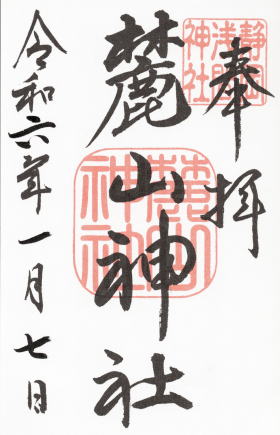 奉拝
静岡
浅間
神社
麓山神社
麓山
神社
令和六年一月七日